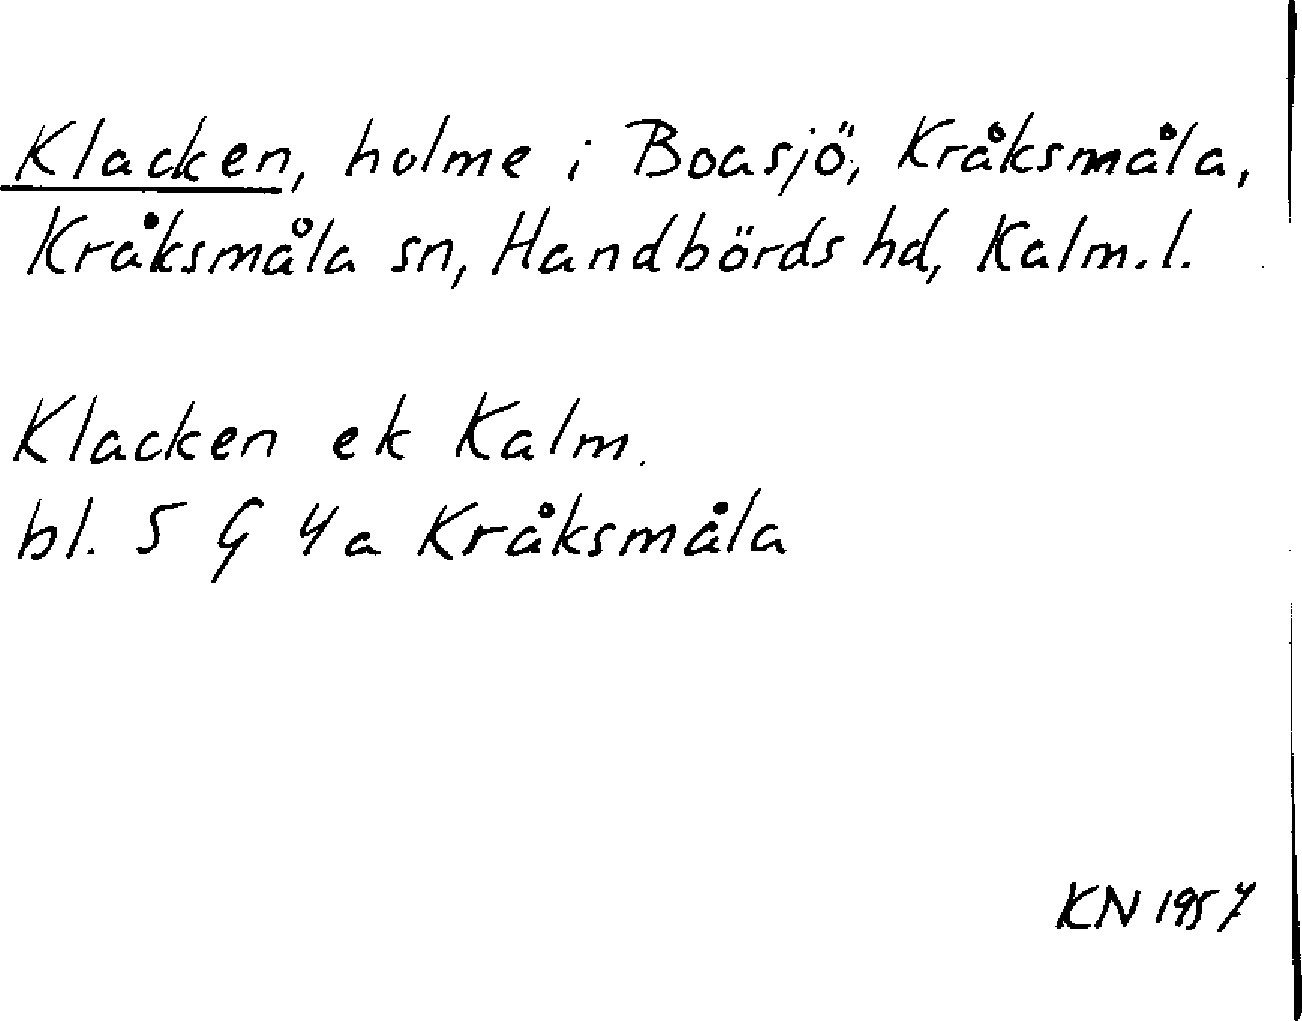 Klacken, holme i Boasjö, Kråksmåla,
Kråksmåla sn, Handbörds hd, Kalm.l.
Klacken ek Kalm.
bl. 5 G 4a Kråksmåla
KN 1957